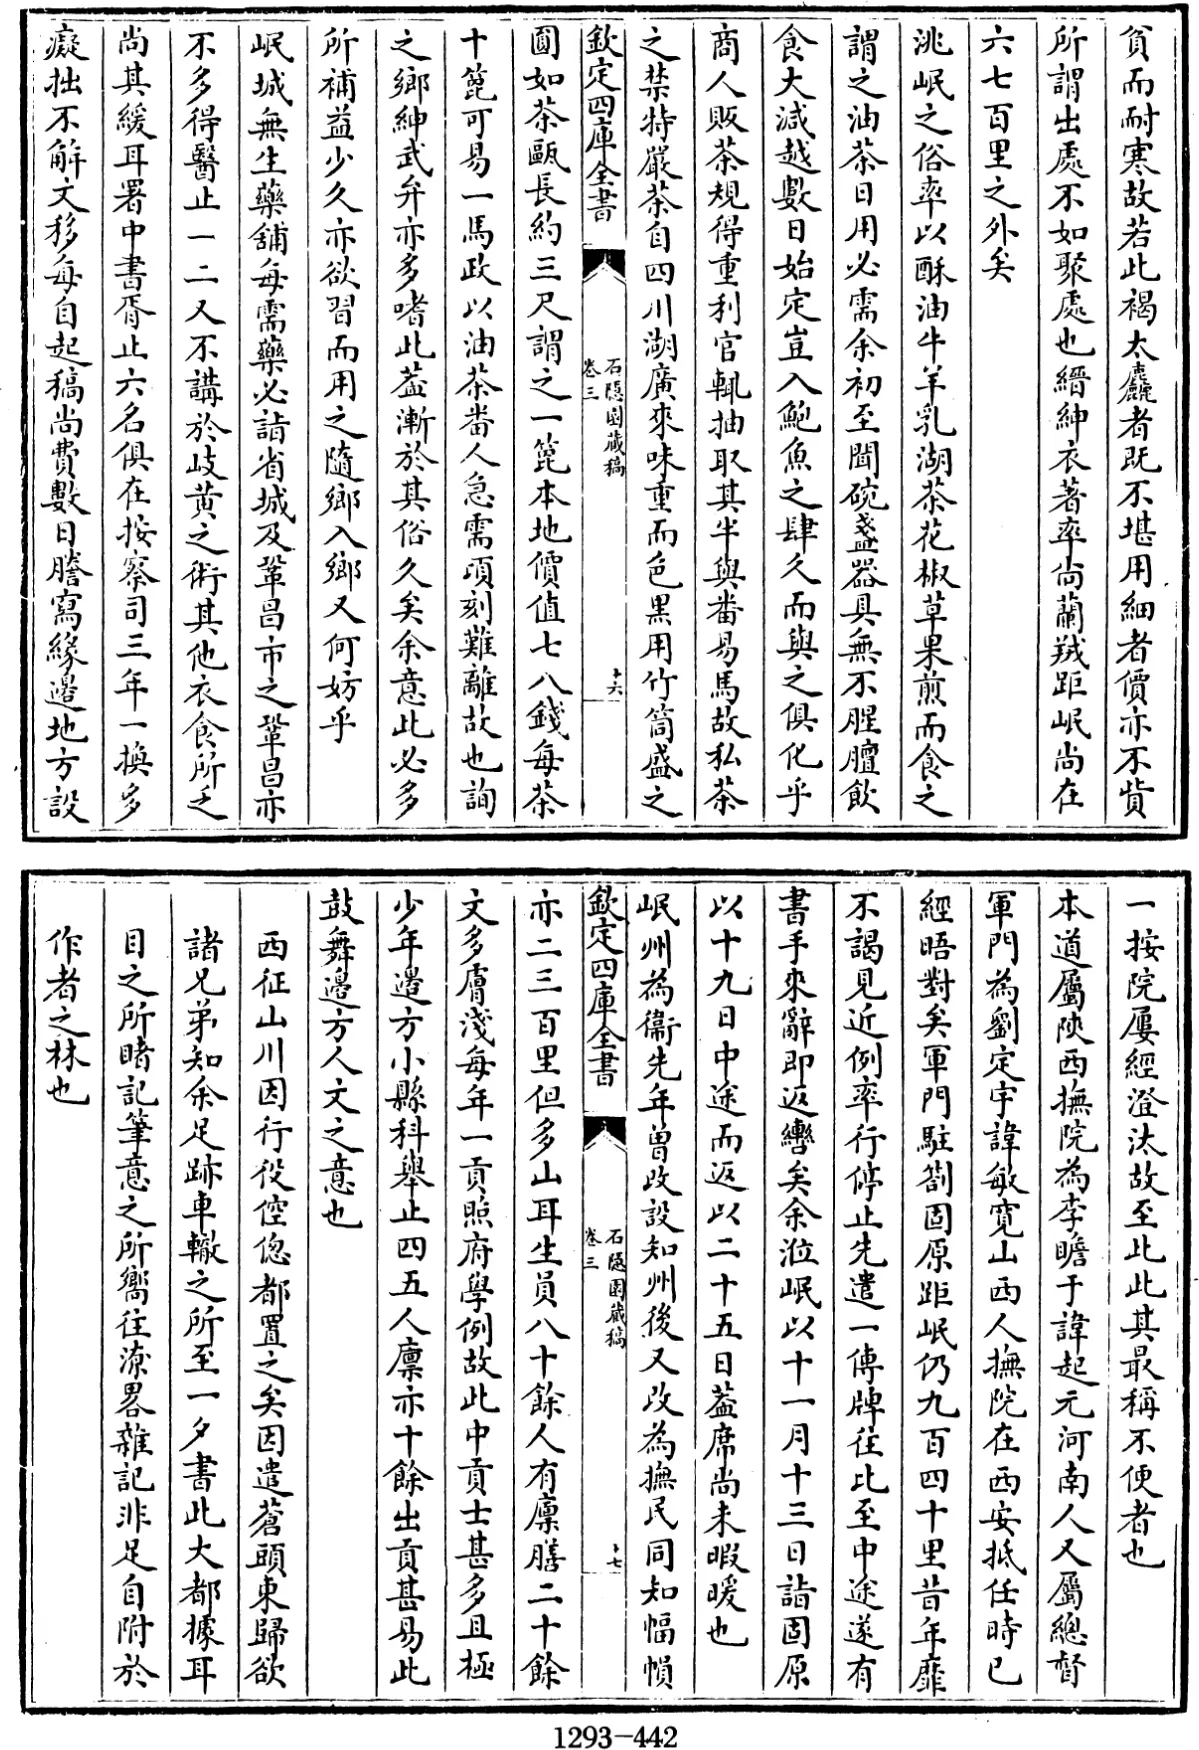 貧而耐寒故若此褐太麤者既不堪用細者價亦不貲
所謂出處不如聚處也縉紳衣著率尚蘭羢距岷尚在
六七百里之外矣
洮岷之俗率以酥油牛羊乳湖茶花椒草果煎而食之
謂之油茶日用必需余初至聞碗盞器具無不腥膻飲
食大減越數日始定豈入鮑魚之肆久而與之俱化乎
商人販茶規得重利官輒抽取其半與畨易馬故私茶
之禁特嚴茶自四川湖廣來味重而色黑用竹筒盛之
欽定四庫全書
石隱園藏稿
卷三
十六
圓如茶甌長約三尺謂之一篦本地價值七八錢每茶
十篦可易一馬政以油茶畨人急需頃刻難離故也詢
之鄉紳武弁亦多嗜此葢漸於其俗久矣余意此必多
所補益少久亦欲習而用之隨鄉入鄉又何妨乎
岷城無生藥舖每需藥必詣省城及鞏昌市之鞏昌亦
不多得醫止一二又不講於岐黄之術其他衣食所乏
尚其緩耳署中書胥止六名俱在按察司三年一換多
癡拙不解文移每自起稿尚費數日謄寫緣邊地方設
一按院屢經澄汰故至此此其最稱不便者也
本道屬陜西撫院為李瞻于諱起元河南人又屬總督
軍門為劉定宇諱敏寛山西人撫院在西安抵任時已
經晤對矣軍門駐劄固原距岷仍九百四十里昔年靡
不謁見近例率行停止先遣一傳牌往比至中途遂有
書手來辭即返轡矣余涖岷以十一月十三日詣固原
以十九日中途而返以二十五日葢席尚未暇暖也
岷州為衞先年曾改設知州後又改為撫民同知幅幀
欽定四庫全書
石隱園藏稿
卷三
十七
亦二三百里但多山耳生員八十餘人有廪膳二十餘
文多膚淺每年一貢照府學例故此中貢士甚多且極
少年邊方小縣科舉止四五人廪亦十餘出貢甚易此
鼓舞邊方人文之意也
西征山川因行役倥傯都置之矣因遣蒼頭東歸欲
諸兄弟知余足跡車轍之所至一夕書此大都據耳
目之所睹記筆意之所嚮往潦畧雜記非足自附於
作者之林也
1293-442